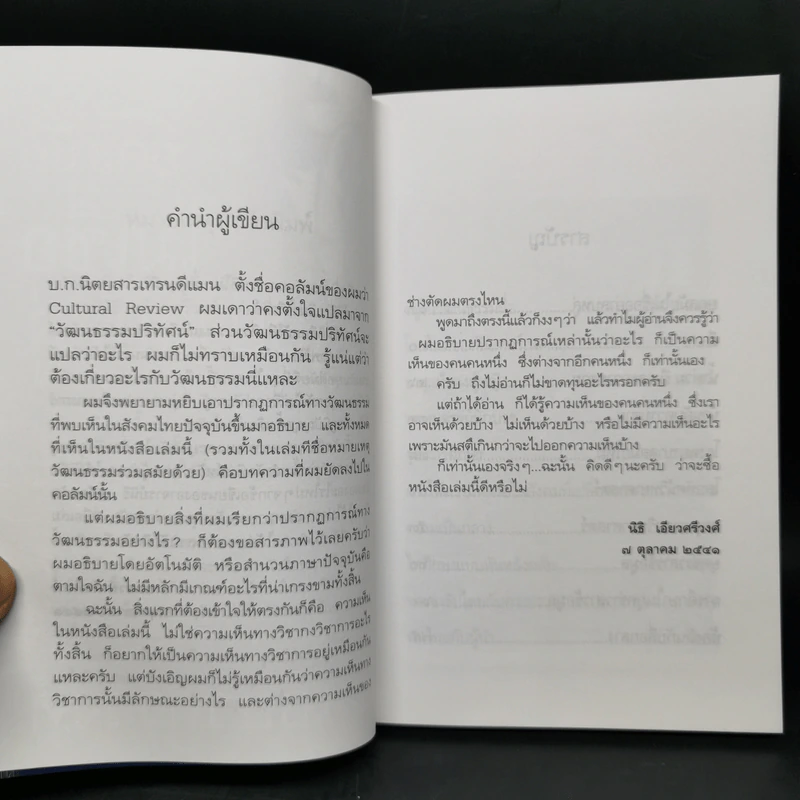 คำนำผู้เขียน
บ.ก.นิตยสารเทรนดีแมน ตั้งชื่อคอลัมน์ของผมว่า
Cultural Review ผมเดาว่าคงตั้งใจแปลมาจาก
“วัฒนธรรมปริทัศน์” ส่วนวัฒนธรรมปริทัศน์จะ
แปลว่าอะไร ผมก็ไม่ทราบเหมือนกัน รู้แน่แต่ว่า
ต้องเกี่ยวอะไรกับวัฒนธรรมนี่แหละ
ผมจึงพยายามหยิบเอาปรากฏการณ์ทางวัฒนธรรม
ที่พบเห็นในสังคมไทยปัจจุบันขึ้นมาอธิบาย และทั้งหมด
ที่เห็นในหนังสือเล่มนี้ (รวมทั้งในเล่มที่ชื่อหมายเหตุ
วัฒนธรรมร่วมสมัยด้วย) คือบทความที่ผมยัดลงไปใน
คอลัมน์นั้น
แต่ผมอธิบายสิ่งที่ผมเรียกว่าปรากฏการณ์ทาง
วัฒนธรรมอย่างไร? ก็ต้องขอสารภาพไว้เลยครับว่า
ผมอธิบายโดยอัตโนมัติ หรือสำนวนภาษาปัจจุบันคือ
ตามใจฉัน ไม่มีหลักมีเกณฑ์อะไรที่น่าเกรงขามทั้งสิ้น
ฉะนั้น สิ่งแรกที่ต้องเข้าใจให้ตรงกันก็คือ ความเห็น
ในหนังสือเล่มนี้ ไม่ใช่ความเห็นทางวิชากงวิชาการอะไร
ทั้งสิ้น ก็อยากให้เป็นความเห็นทางวิชาการอยู่เหมือนกัน
แหละครับ แต่บังเอิญผมก็ไม่รู้เหมือนกันว่าความเห็นทาง
วิชาการนั้นมีลักษณะอย่างไร และต่างจากความเห็นของ
ช่างตัดผมตรงไหน
พูดมาถึงตรงนี้แล้วก็งงๆว่า แล้วทำไมผู้อ่านจึงควรรู้ว่า
ผมอธิบายปรากฏการณ์เหล่านั้นว่าอะไร ก็เป็นความ
เห็นของคนคนหนึ่ง ซึ่งต่างจากอีกคนหนึ่ง ก็เท่านั้นเอง
ครับ ถึงไม่อ่านก็ไม่ขาดทุนอะไรหรอกครับ
แต่ถ้าได้อ่าน ก็ได้รู้ความเห็นของคนคนหนึ่ง ซึ่งเรา
อาจเห็นด้วยบ้าง ไม่เห็นด้วยบ้าง หรือไม่มีความเห็นอะไร
เพราะมันสตึเกินกว่าจะไปออกความเห็นบ้าง
ก็เท่านั้นเองจริงๆ...ฉะนั้น คิดดีๆนะครับ ว่าจะซื้อ
หนังสือเล่มนี้ดีหรือไม่
นิธิ เอียวศรีวงศ์
๗ ตุลาคม ๒๕๔๑